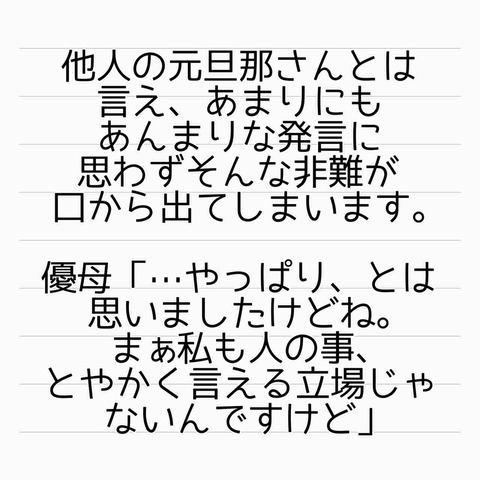 他人の元旦那さんとは
言え、あまりにも
あんまりな発言に
思わずそんな非難が
口から出てしまいます。
優母「…やっぱり、とは
思いましたけどね。
まぁ私も人の事、
とやかく言える立場じゃ
ないんですけど」